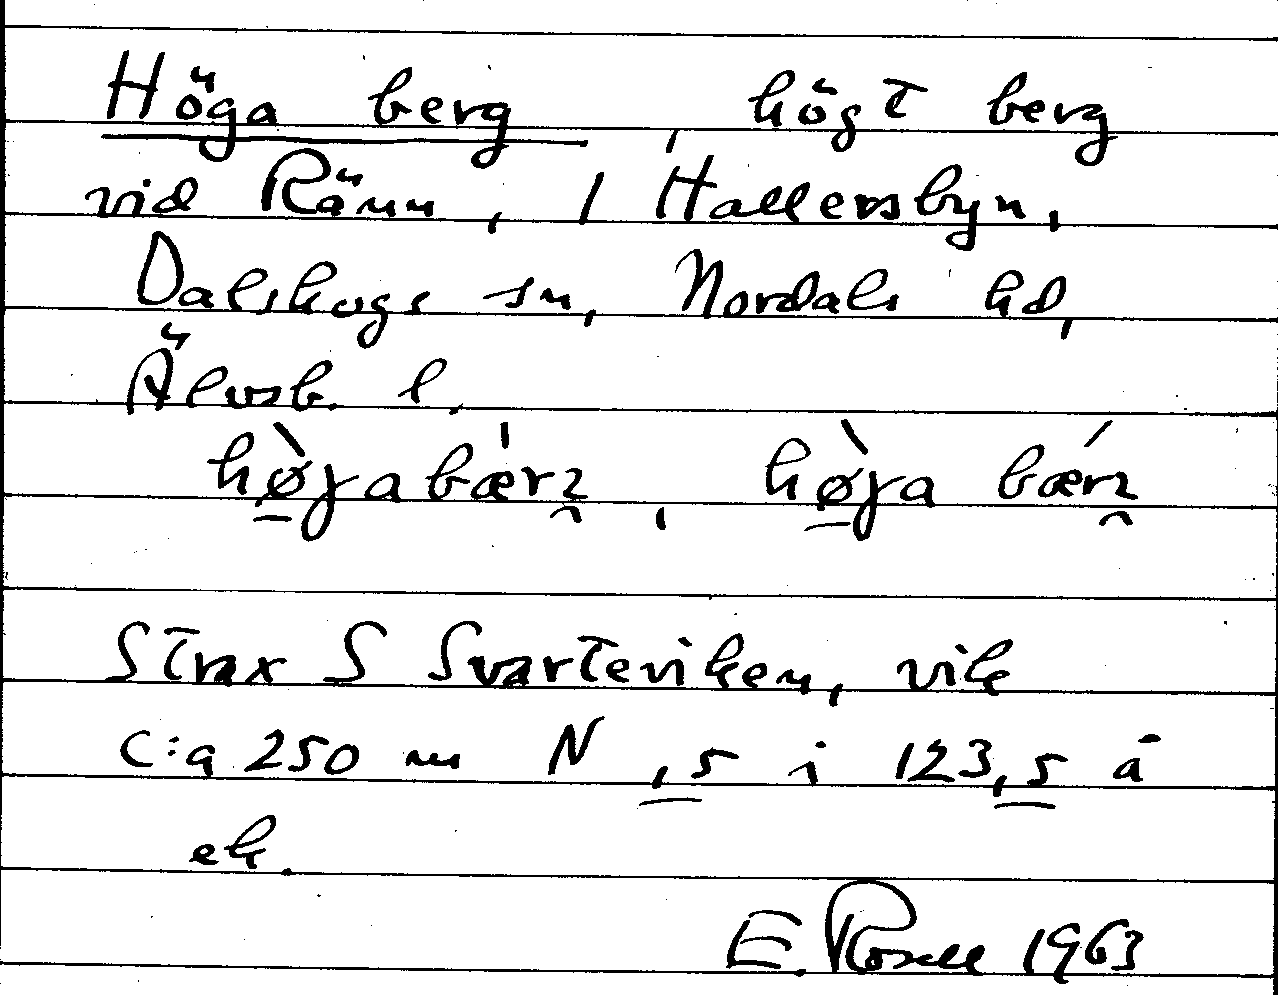 Höga berg, högt berg
vid Ränn, i Hallersbyn,
Dalskogs sn, Nordals hd,
Älvsb. l.
hø̠̀ɟabær̍ꝛ̯, hø̠̀ɟa bǽrꝛ̯
Strax S Svarteviken, vik
c:a 250 m N ,5 i 123,5 å
ek.
E. Rosell 1963